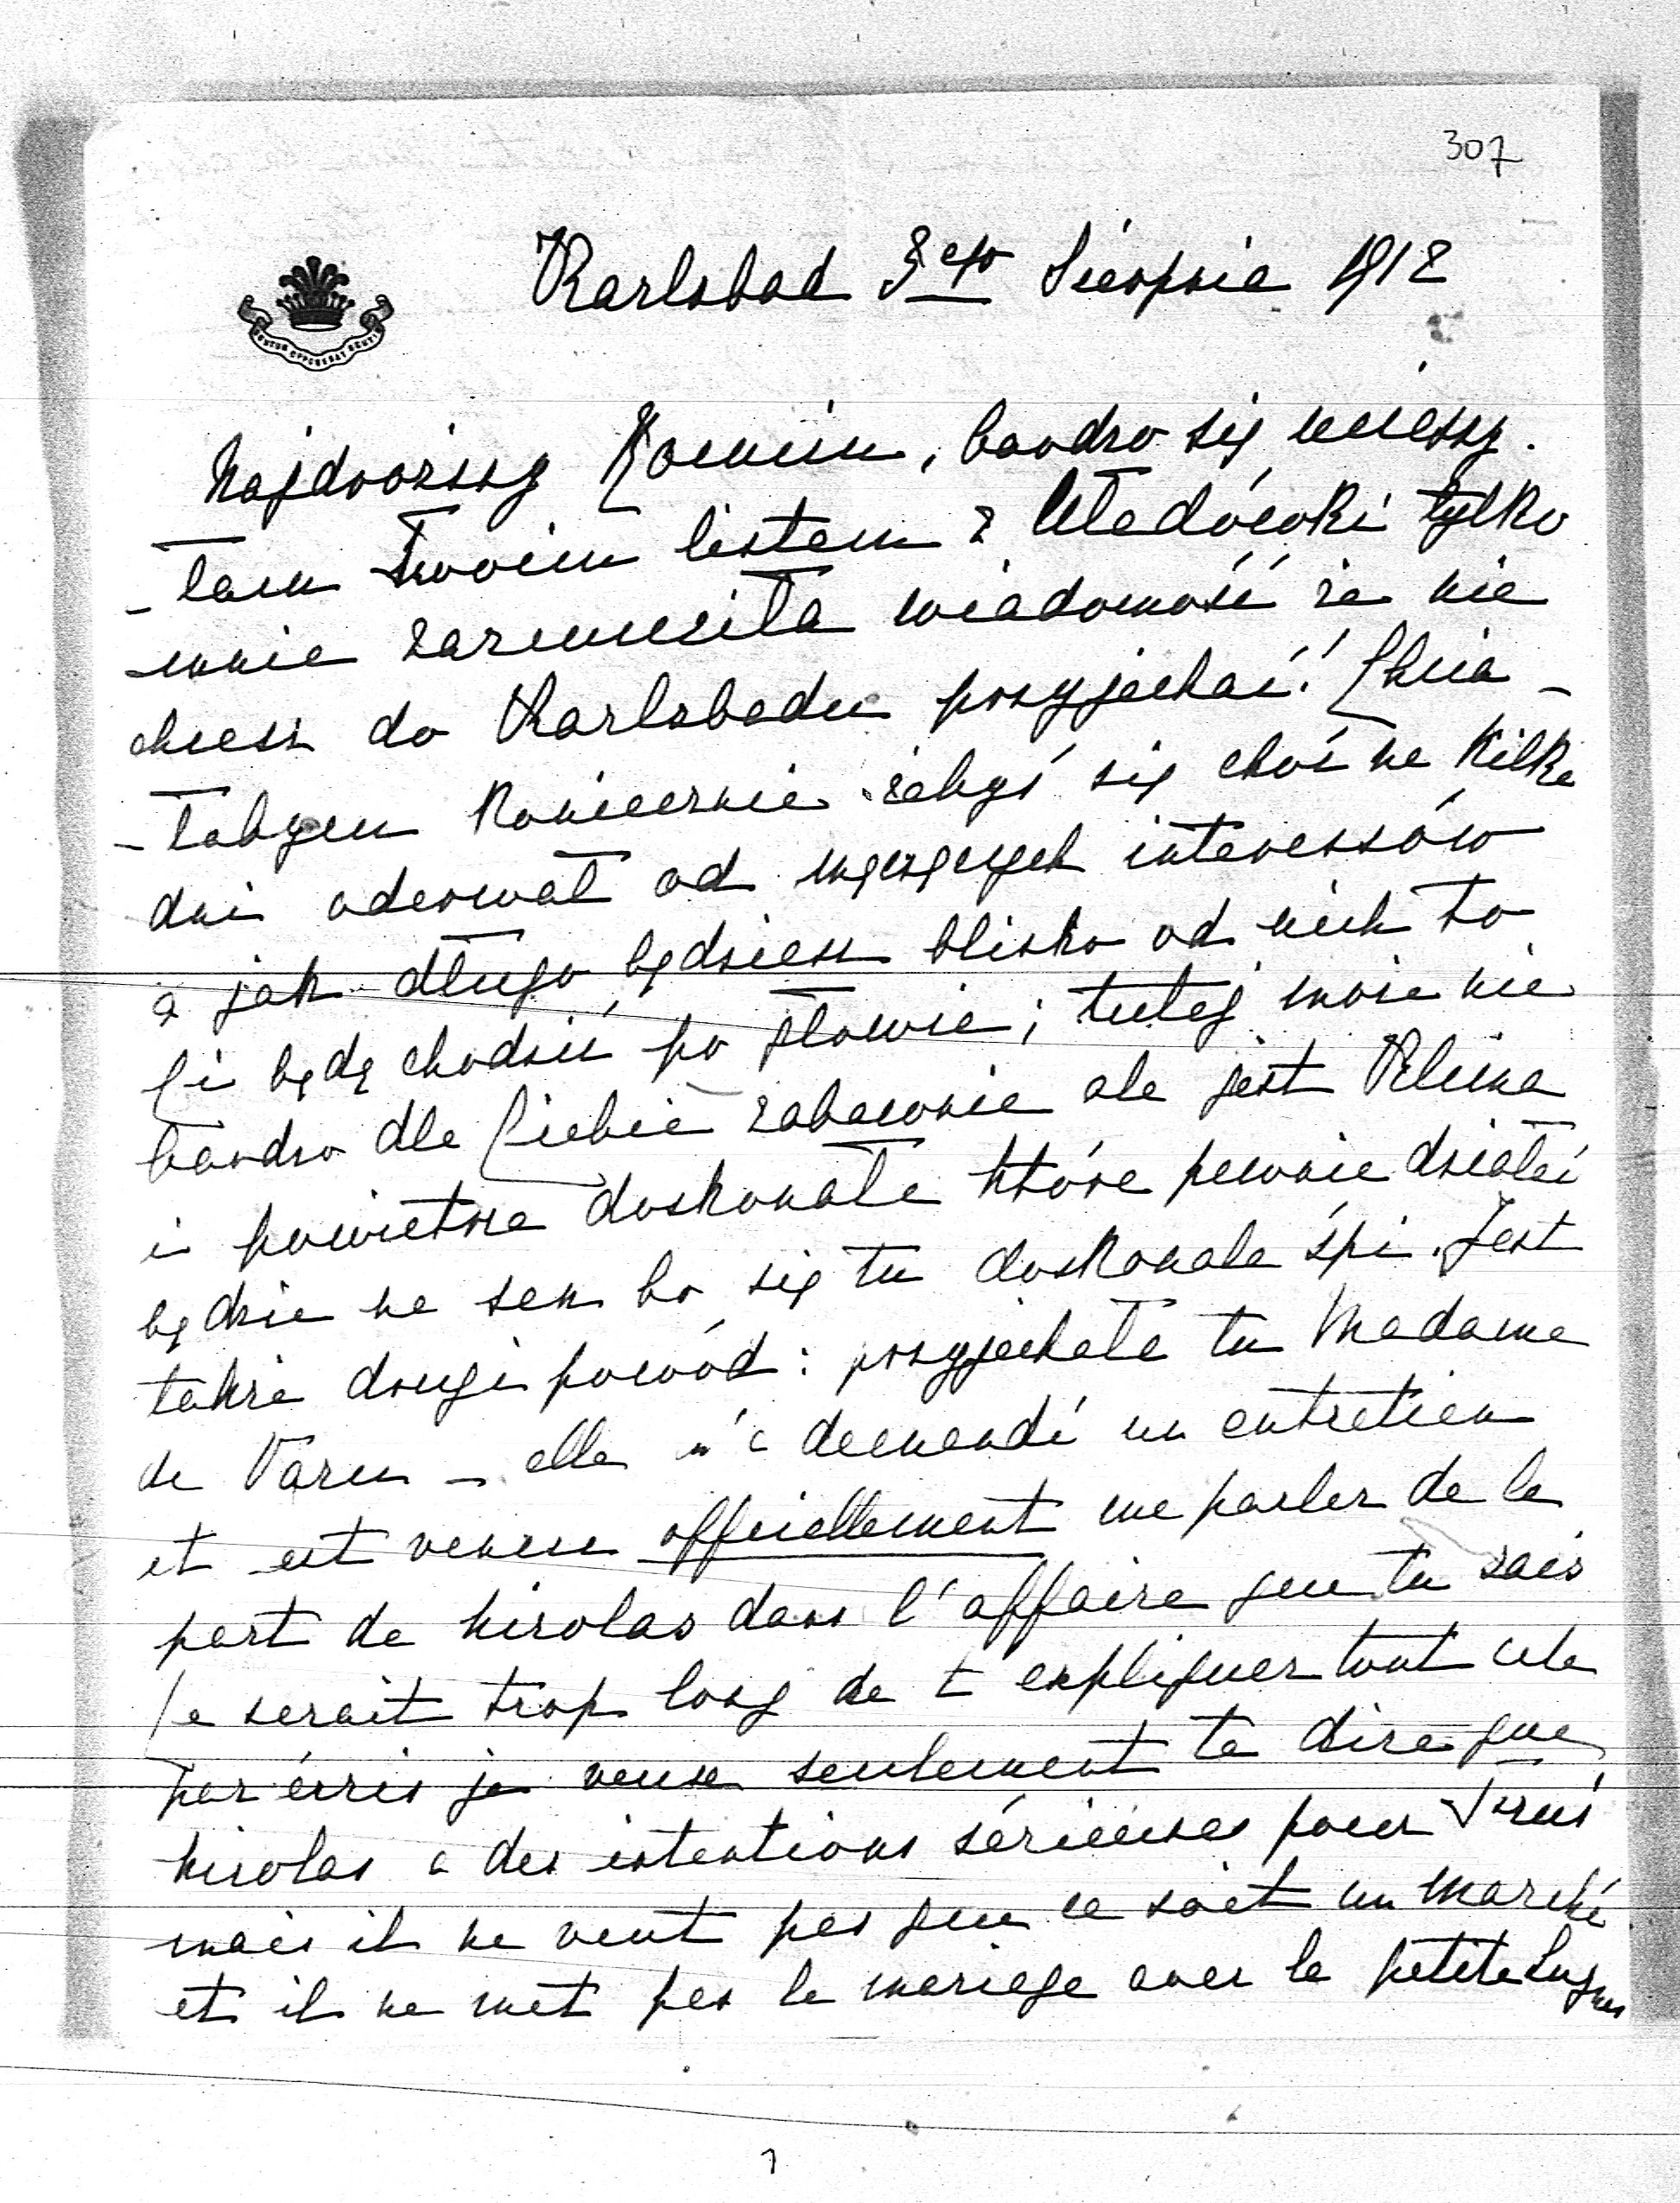 307
Karlsbad 3ego Sierpnia 1912
Najdroższy Romciu, bardzo się ucieszy-
-łam Twoim listem z Medówki tylko
mnie zasmuciła wiadomość że nie
chcesz do Karlsbadu przyjechać! Chcia-
-łabym koniecznie żebyś się choć na kilka
dni oderwał od męczących interessów
a jak długo będziesz blisko od nich to
Ci będą chodzić po głowie; tutaj może nie
bardzo dla Ciebie zabawnie ale jest klima
i powietrze doskonałe które pewnie działać
będzie na sen bo się tu doskonale śpi. Jest
także drugi powód: przyjechała tu Madame
de - elle m'a demandé un entretien
et est venue officiellement me parler de la
part de Nicolas dans l'affaire que tu sais
Ce serait trop long de t'expliquer tout cela
par écris je veux seulement te dire que
Nicolas a des intentions sérieuses pour
mais il ne veut pas que ce soit un marché
et il ne met pas le mariage avec la petite
1